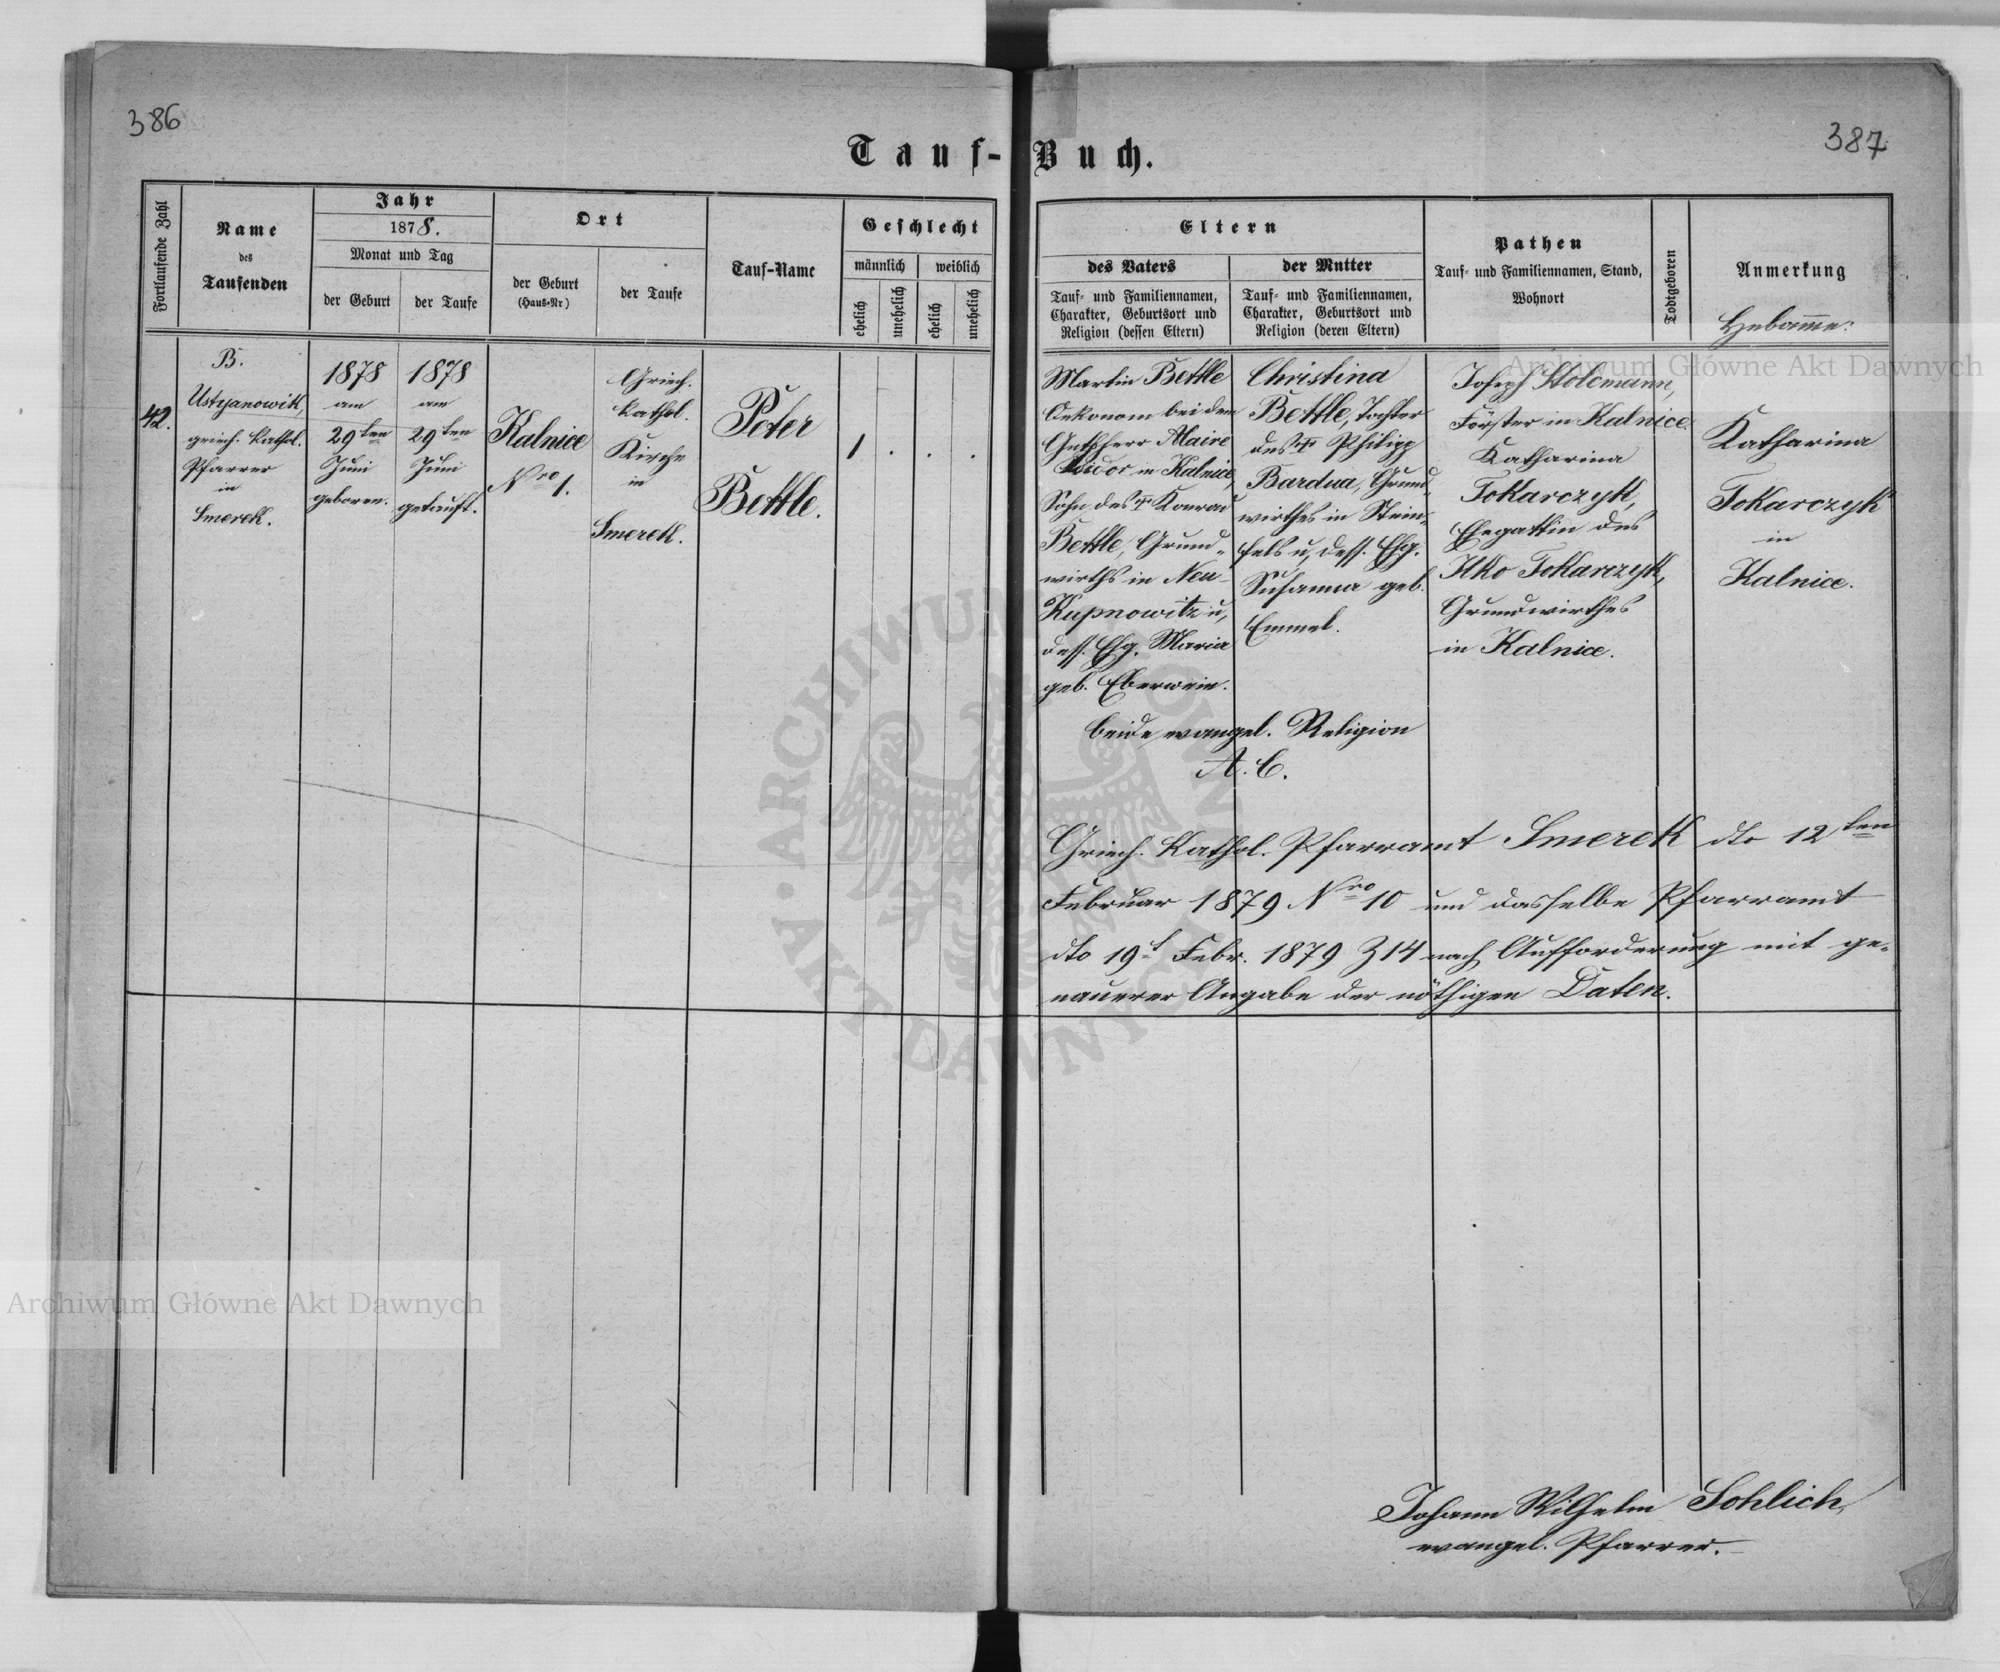 386
387
Tauf-Buch.
Fortlaufende Zahl
Name
des
Taufenden
Jahr
1878.
Monat und Tag
der Geburt
der Taufe
Ort
der Geburt
(Haus-Nr)
der Taufe
Tauf-Name
Geschlecht
männlich
weiblich
ehelich
unehelich
ehelich
unehelich
Eltern
des Vaters
Tauf- und Familiennamen,
Charakter, Geburtsort und
Religion (dessen Eltern)
der Mutter
Tauf- und Familiennamen,
Charakter, Geburtsort und
Religion (deren Eltern)
Pathen
Tauf- und Familiennamen, Stand,
Wohnort
Todtgeboren
Anmerkung
Hebamme:
42.
B.
Ustyanowik,
griech. kathol.
Pfarrer
in
Smerek.
1878
am
29ten
Juni
geboren.
1878
am
29ten
Juni
getauft.
Kalnice
Nro 1.
Griech.
kathol.
Kirche
in
Smerek.
Peter
Bettle.
1 . . .
Martin Bettle
Oekonom bei dem
Gutsherr
in Kalnice,
Sohn des † Konrad
Bettle, Grund-
wirths in Neu-
Kupnowitz u,
dess. Ehg. Maria
geb. Eberwein.
Christina
Bettle, Tochter
des † Philipp
Bardua, Grund-
wirthes in Stein-
fels u, dess. Ehg.
Susanna geb.
Emmel.
beide evangel. Religion
A. C.
Joseph Kolemann,
Förster in Kalnice.
Katharina
Tokarczyk,
Ehegattin des
Ilko Tokarczyk,
Grundwirthes
in Kalnice.
Katharina
Tokarczyk
in
Kalnice.
Griech. kathol. Pfarramt Smerek dto 12ten
Februar 1879 Nro 10 und dasselbe Pfarramt
dto 19t Febr. 1879 Z 14 nach Aufforderung mit ge-
nauerer Angabe der nöthigen Daten.
Johann Wilhelm Sohlich,
evangel. Pfarrer.
Archiwum Główne Akt Dawnych
Archiwum Główne Akt Dawnych